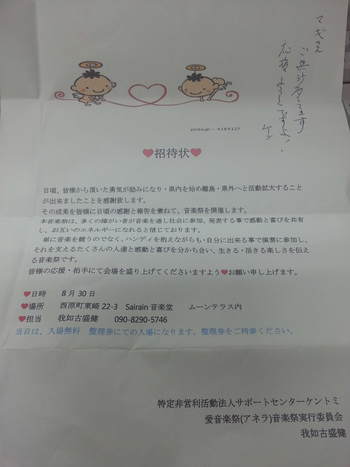 ご無沙汰してます
♥招待状♥
日頃、皆様から頂いた勇気が励みになり・県内を始め離島・県外へと活動拡大すること
が出来ましたことを感謝致します。
その成果を皆様に日頃の感謝と報告を兼ねて、音楽祭を開催します。
本音楽祭は、多くの障がい者が音楽を通し社会に参加、発表する事で感動と喜びを共有
し、お互いのエネルギーになれると信じております。
単に音楽を競うのでなく、ハンディを抱えながらも・自分に出来る事で演奏に参加し、
それを支えるたくさんの人達と感動と喜びを分かち合い、生きる・活きる楽しさを伝え
る音楽祭です。
皆様の応援・拍手にて会場を盛り上げてくださいますよう♥お願い申し上げます。
♥日時 8月30日
♥場所 西原町東崎 22-3 Sairain 音楽堂 ムーンテラス内
♥担当 我如古盛健 090-8290-5746
当日は、入場無料 整理券にての入場になります、整理券をご持参ください。
特定非営利活動法人サポートセンターケントミ
愛音楽祭(アネラ)音楽祭実行委員会
我如古盛健